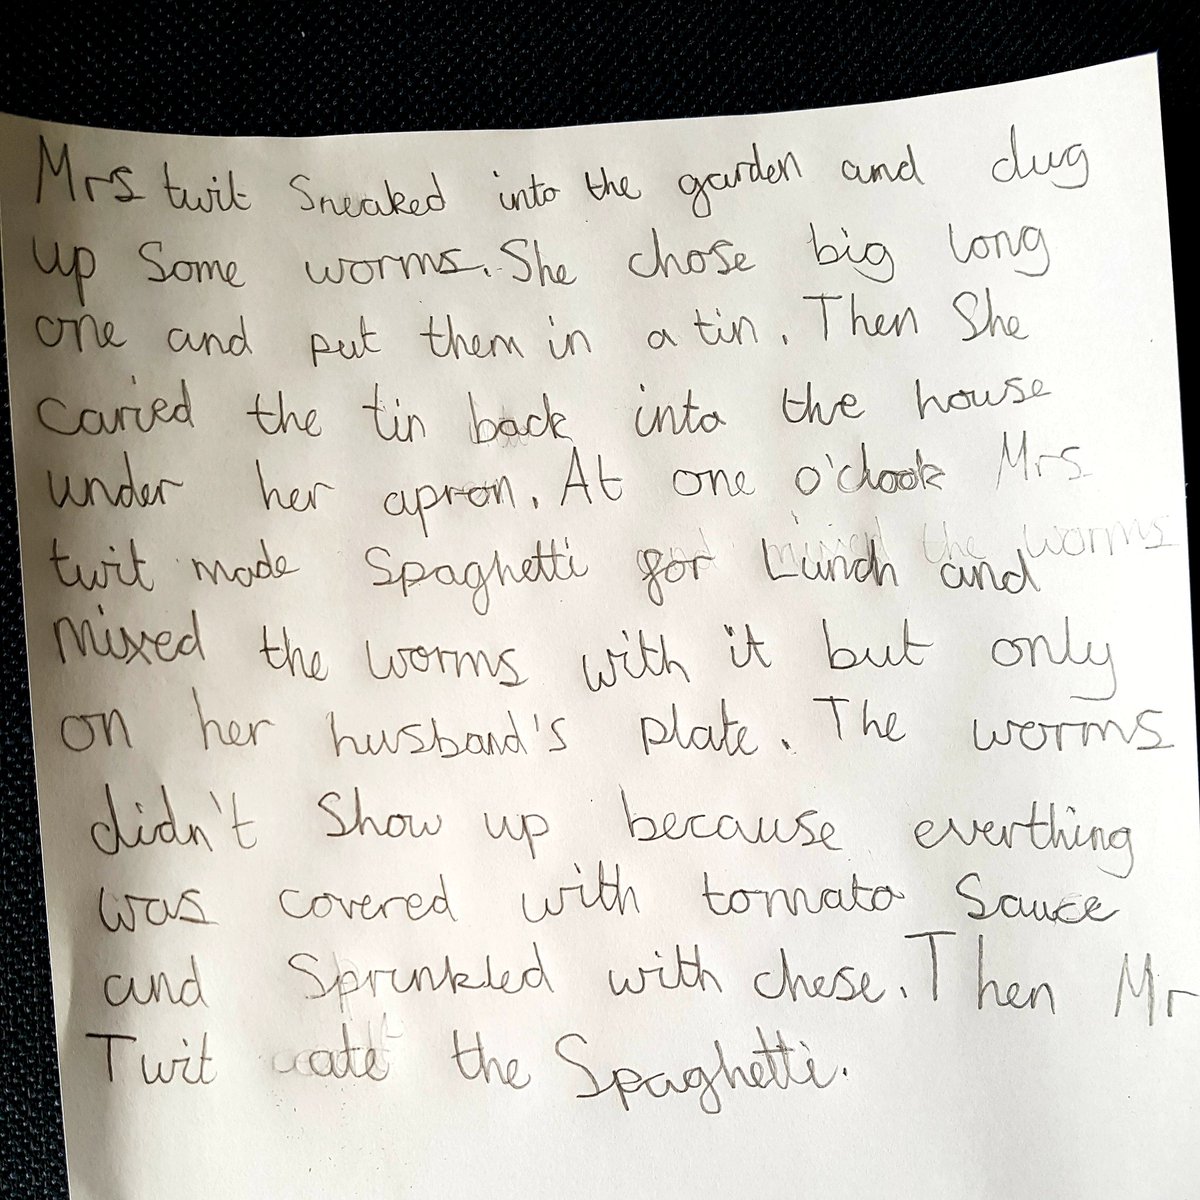 Mrs twit Sneaked into the garden and dug
up Some worms. She chose big long
one and put them in a tin. Then She
caried the tin back into the house
under her apron. At one o'clook Mrs
twit made Spaghetti for Lunch and
mixed the worms with it but only
on her husband's plate. The worms
didn't Show up because everthing
was covered with tomato Sauce
and Sprinkled with chese. Then Mr
Twit ate the Spaghetti.